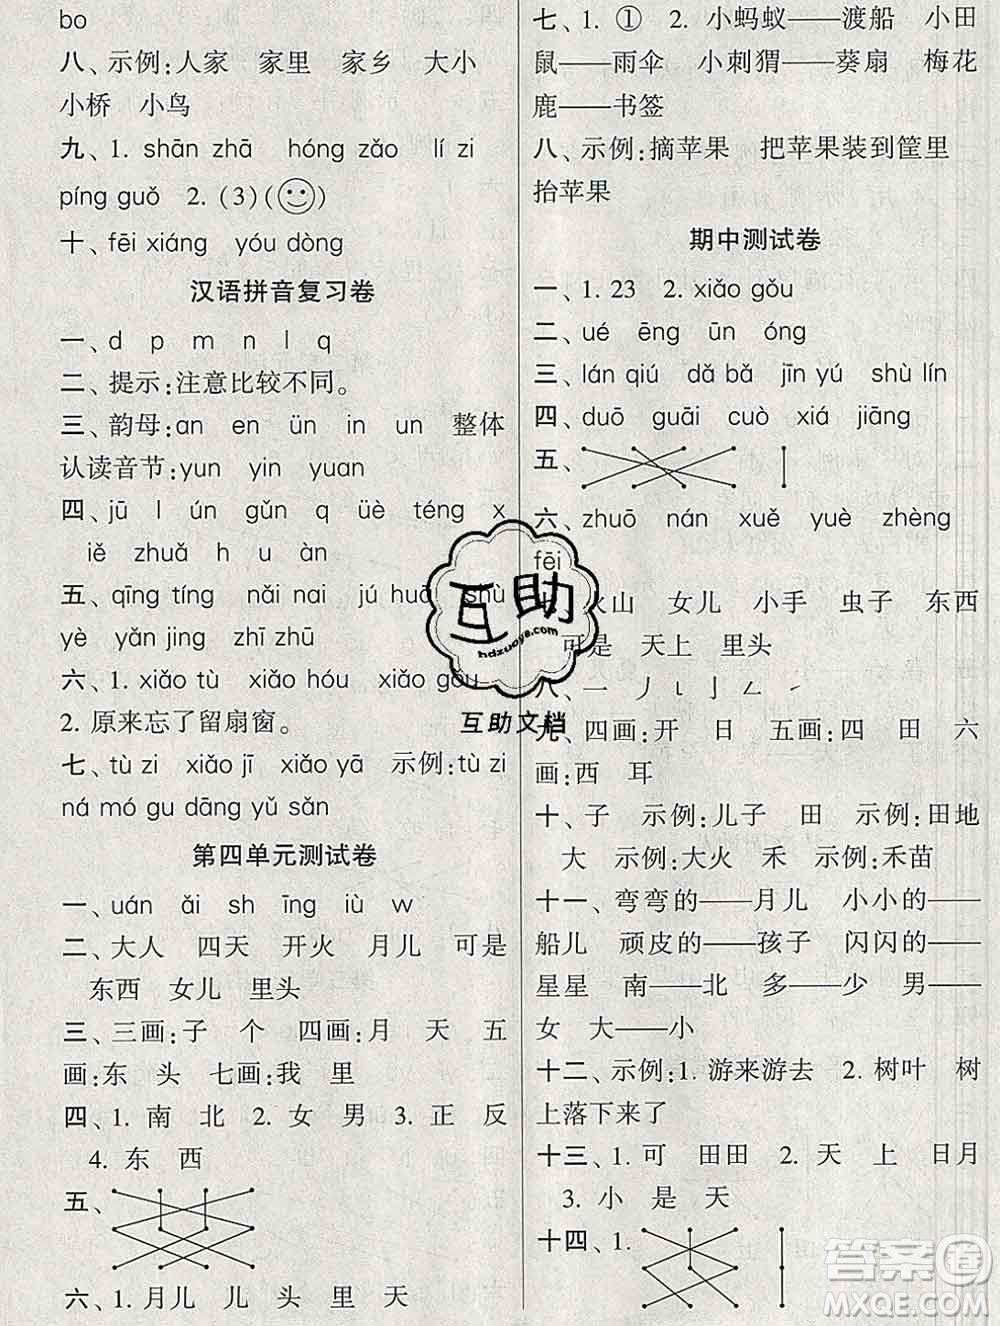 bo
八、示例:人家 家里 家乡 大小
小桥 小鸟
九、1. shān zhā hóng zǎo lí zi
píng guǒ 2. (3)( )
十、fēi xiáng yóu dòng
汉语拼音复习卷
一、d p m n l q
二、提示:注意比较不同。
三、韵母:an en ün in un 整体
认读音节:yun yin yuan
四、jū l ún gǔn q üè téng x
iě zhuǎ h u àn
五、qīng tíng nǎi nai jú huā shù
yè yǎn jing zhī zhū
六、1. xiǎo tù xiǎo hóu xiǎo gǒu
2. 原来忘了留扇窗。
七、tù zi xiǎo jī xiǎo yā 示例:tù zi
ná mó gu dāng yǔ sǎn
第四单元测试卷
一、uán ǎi sh īng iù w
二、大人 四天 开火 月儿 可是
东西 女儿 里头
三、三画:子 个 四画:月 天 五
画:东 头 七画:我 里
四、1. 南 北 2. 女 男 3. 正 反
4. 东 西
五、
六、1. 月儿 儿 头 里 天
七、1. ① 2. 小蚂蚁——渡船 小田
鼠——雨伞 小刺猬——葵扇 梅花
鹿——书签
八、示例:摘苹果 把苹果装到筐里
抬苹果
期中测试卷
一、1. 23 2. xiǎo gǒu
二、ué ēng ūn óng
三、lán qiú dǎ bǎ jīn yú shù lín
四、duō guāi cuò xiá jiāng
五、
六、zhuō nán xuě yuè zhèng
fēi
火山 女儿 小手 虫子 东西
可是 天上 里头
八、一 丿 ㇀ 亅 ㄥ ㇀
九、四画:开 日 五画:四 田 六
画:西 耳
十、子 示例:儿子 田 示例:田地
大 示例:大火 禾 示例:禾苗
十一、弯弯的——月儿 小小的——
船儿 顽皮的——孩子 闪闪的——
星星 南——北 多——少 男——
女 大——小
十二、示例:1. 游来游去 2. 树叶 树
上落下来了
十三、1. 可 田田 2. 天 上 日月
3. 小 是 天
十四、1.
互助
hdzuoye.com
互助文档
答案圈
MXQE.COM